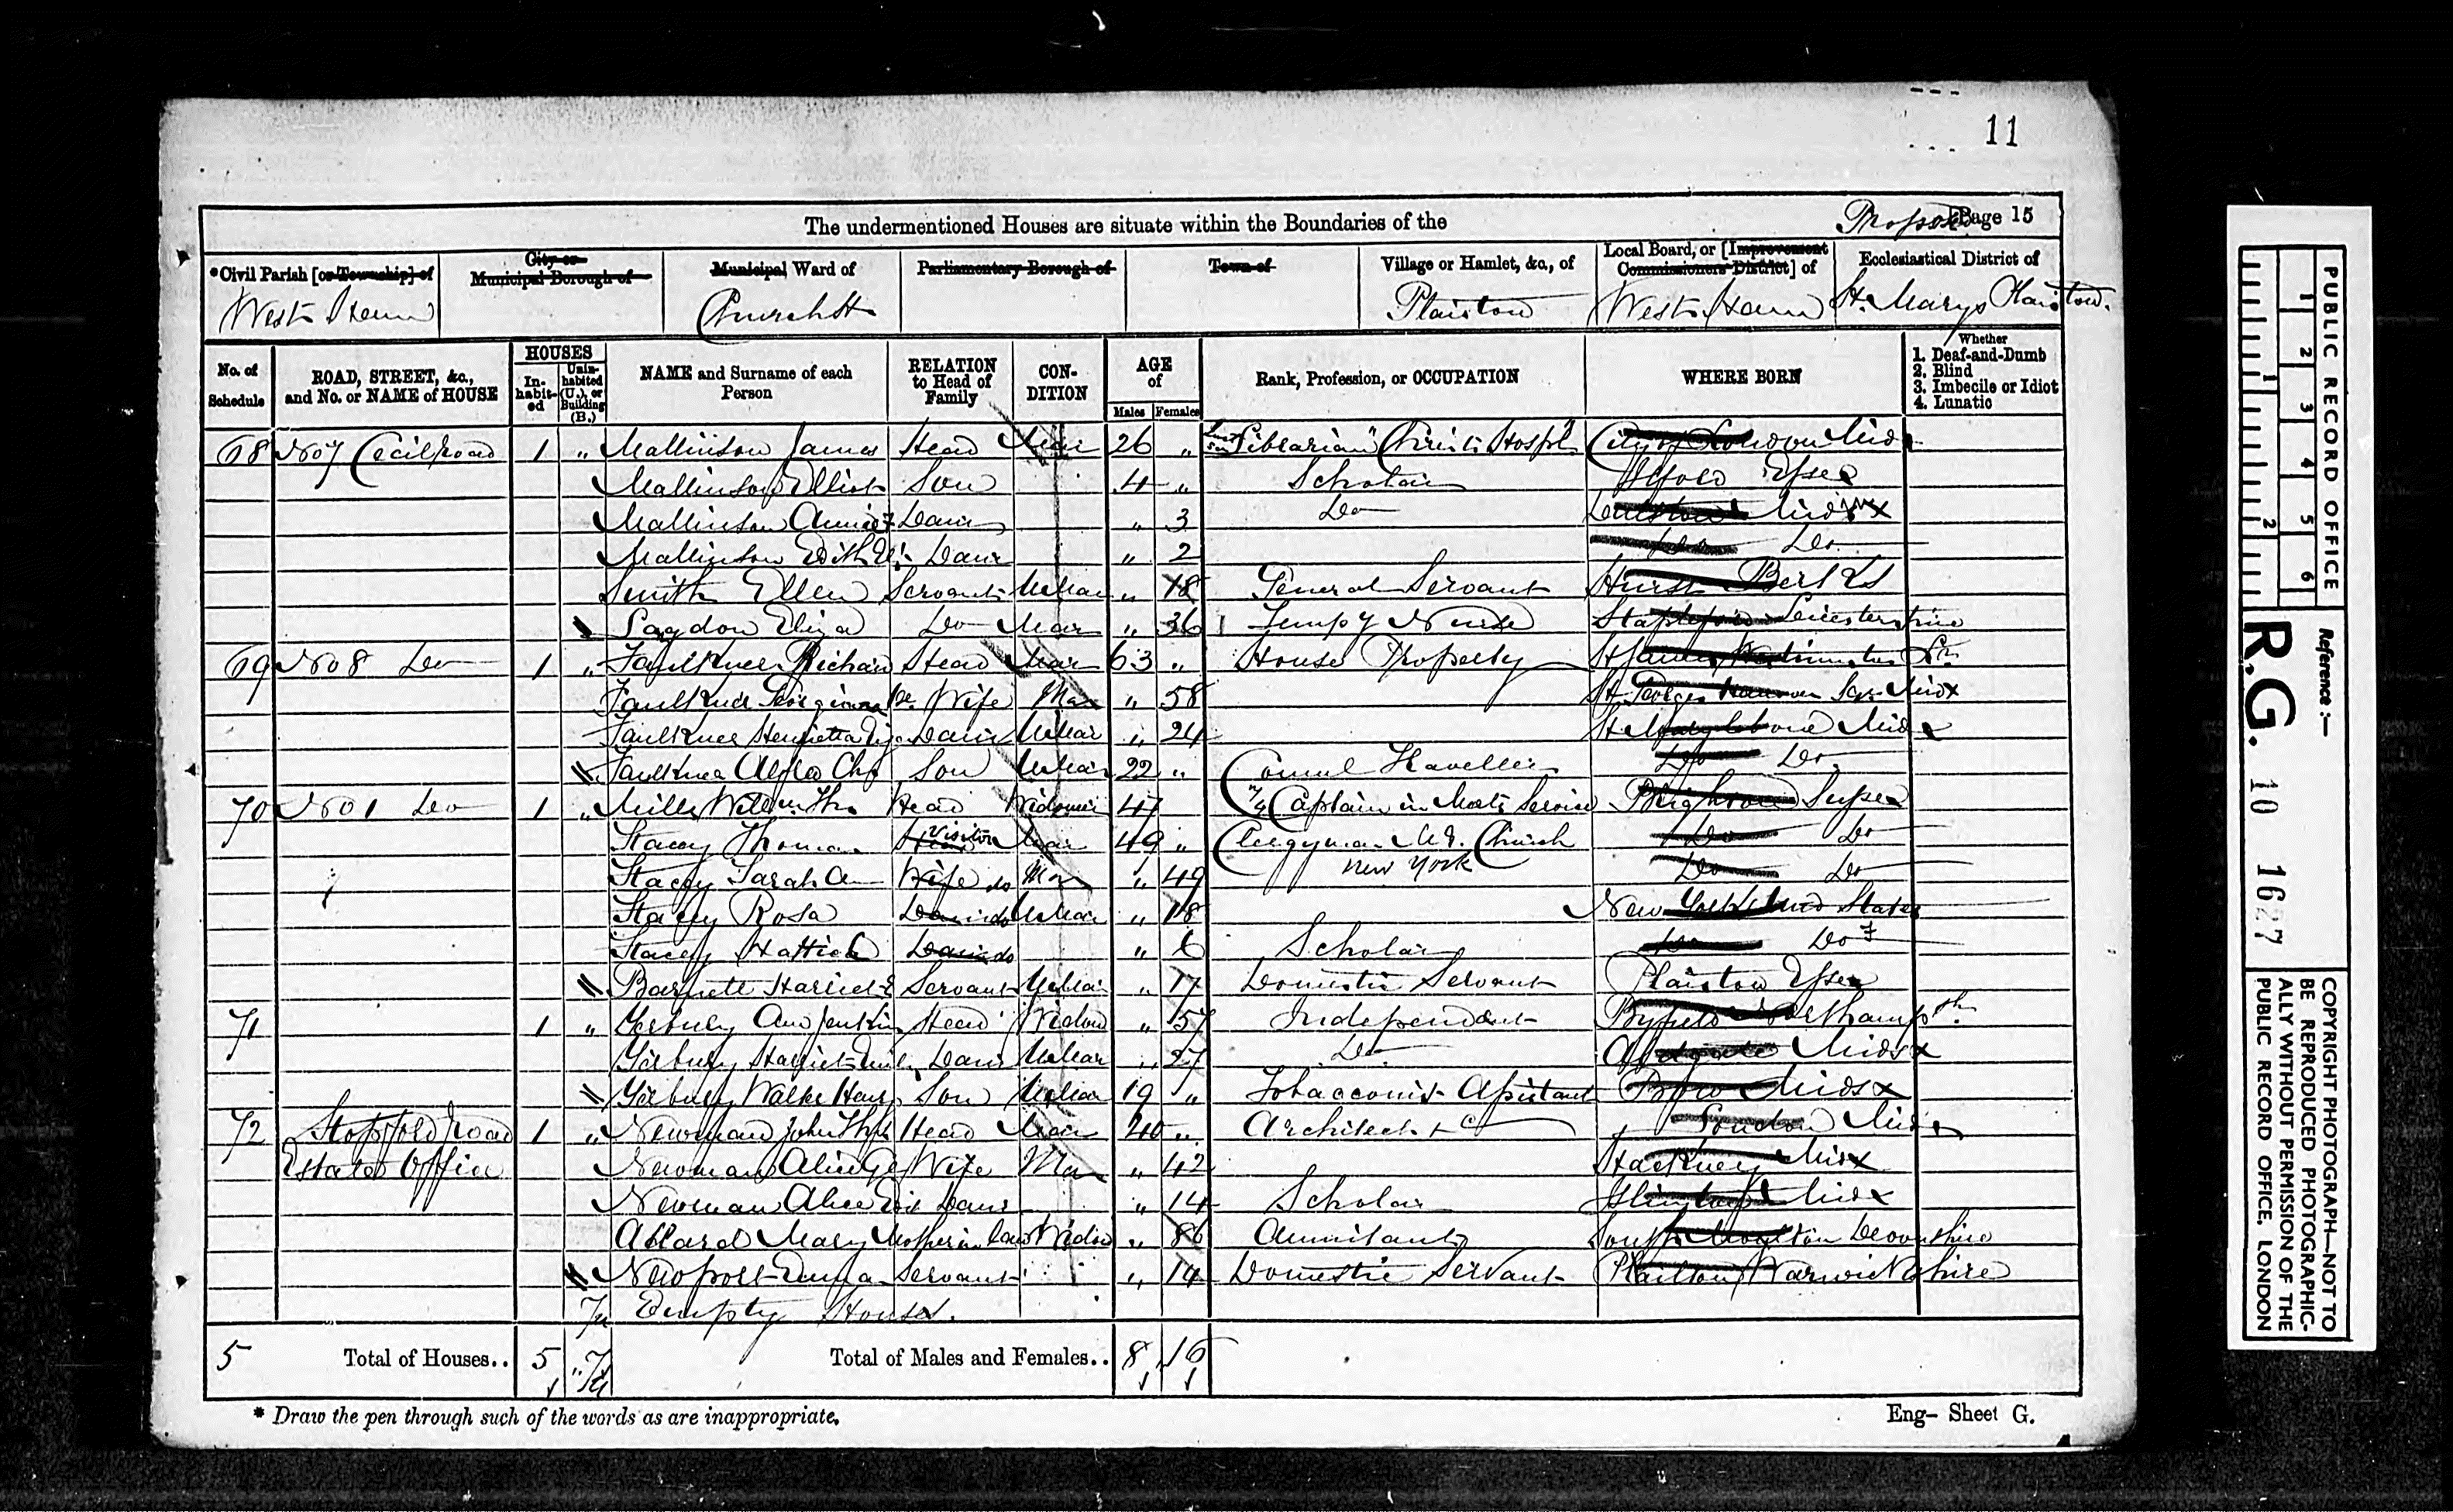 11
The undermentioned Houses are situate within the Boundaries of the
Page 15
*Civil Parish [or Township] of
City or Municipal Borough of
Municipal Ward of
Parliamentary Borough of
Town of
Village or Hamlet, &c., of
Local Board, or [Improvement Commissioners District] of
Ecclesiastical District of
West Ham
Church St
Plaistow
West Ham
St. Marys Plaistow.
No. of Schedule
ROAD, STREET, &c., and No. or NAME of HOUSE
HOUSES
In-habit-ed
Unin-habited (U.), or Building (B.)
NAME and Surname of each Person
RELATION to Head of Family
CON-DITION
AGE of
Males
Females
Rank, Profession, or OCCUPATION
WHERE BORN
Whether
1. Deaf-and-Dumb
2. Blind
3. Imbecile or Idiot
4. Lunatic
68 No 7 Cecil Road 1 " Mallinson James Head Mar 26 " Librarian Christs Hospl City of London Midx
Mallinson Elliot Son 4 " Scholar Ilford Essex
Mallinson Daur " 3 Do Midsx
Mallinson Edith Daur " 2 Do Do
Smith Ellen Servant UnMar " 18 General Servant Hurst Berks
Eliza Do Mar " 36 Tempy Nurse Leicestershire
69 No 8 Do 1 " Faulkner Richard Head Mar 63 " House Property St James Westminster
Faulkner Wife Mar " 58 St Georges Hanover Sqr Midx
Faulkner Henrietta Daur UnMar " 24 St Marylebone Midx
Faulkner Alfred Chs Son UnMar 22 " Comml Traveller Do Do
70 No 1 Do 1 " Mills Willm Thos Head Widower 47 Captain in Service Brighton Sussex
Stacey Thomas Visitor Mar 49 " Clergyman M.E. Church Do Do
New York
Stacey Sarah An Wife do Mar " 49 Do Do
Stacey Rosa Daur do UnMar " 18 New York Uned States
Stacey Hattie Daur do " 6 Scholar Do Do
Barnett Harriet E Servant UnMar " 17 Domestic Servant Plaistow Essex
71 1 " Yerbury Ann Jenkins Head Widow " 57 Independent Byfield Northamp
Yerbury Harriet Daur UnMar " 27 Do Aldgate Midsx
Yerbury Walter Hen Son UnMar 19 " Tobacconist Assistant Bow Midsx
72 Stopford Road 1 " Newman John Head Mar 40 " Architect &c London Midx
Estate Office Newman Wife Mar " 42 Hackney Midx
Newman Alice Daur " 14 Scholar Islington Midx
Allard Mary Mother in law Widow " 86 Annuitant South Moulton Devonshire
Newport Emma Servant " 14 Domestic Servant Warwickshire
Empty Houses.
5 Total of Houses.. 5 Total of Males and Females.. 8 16
* Draw the pen through such of the words as are inappropriate.
Eng- Sheet G.
PUBLIC RECORD OFFICE
1 2 3 4 5 6
1 2
Reference:-
R.G. 10 1627
COPYRIGHT PHOTOGRAPH-NOT TO
BE REPRODUCED PHOTOGRAPHIC-
ALLY WITHOUT PERMISSION OF THE
PUBLIC RECORD OFFICE, LONDON